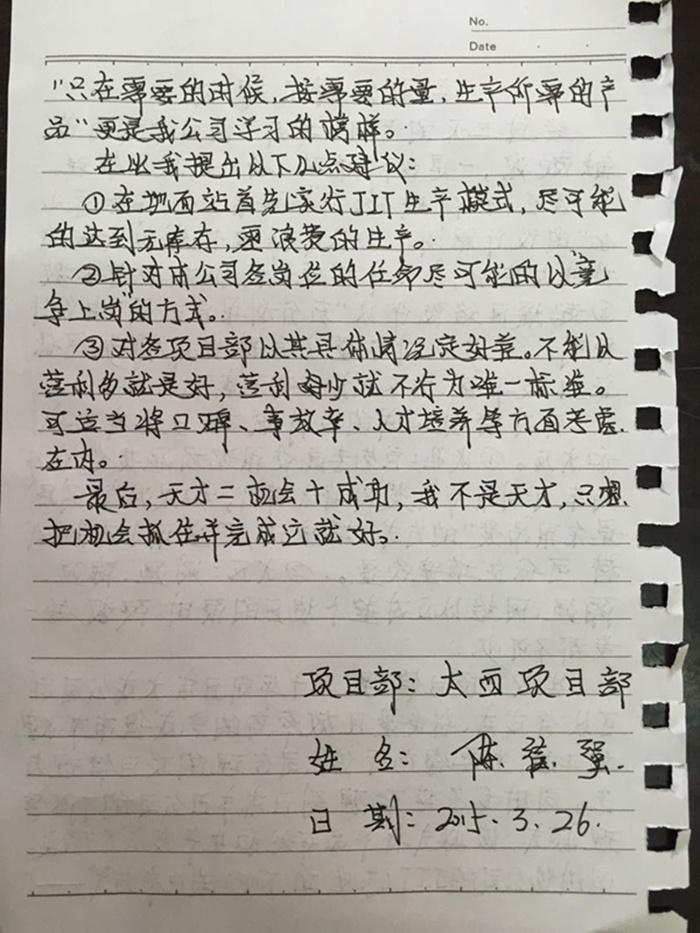 No.
Date
"只在需要的时候,按需要的量,生产所需的产
品"更是我公司学习的榜样。
在此我提出以下几点建议:
①在地面站首先实行JIT生产模式,尽可能
的达到无库存,更浪费的生产。
②针对本公司各岗位的任命尽可能的以"竞
争上岗"的方式。
③对各项目部以其具体情况定好差。不能以
营利多就是好,营利少就不行为唯一标准。
可适当将口碑、事故率、人才培养等方面考虑
在内。
最后,天才=机会+成功,我不是天才,只想
把机会抓住并完成这就好。
项目部:太西项目部
姓名:陈 强
日期:2015.3.26.